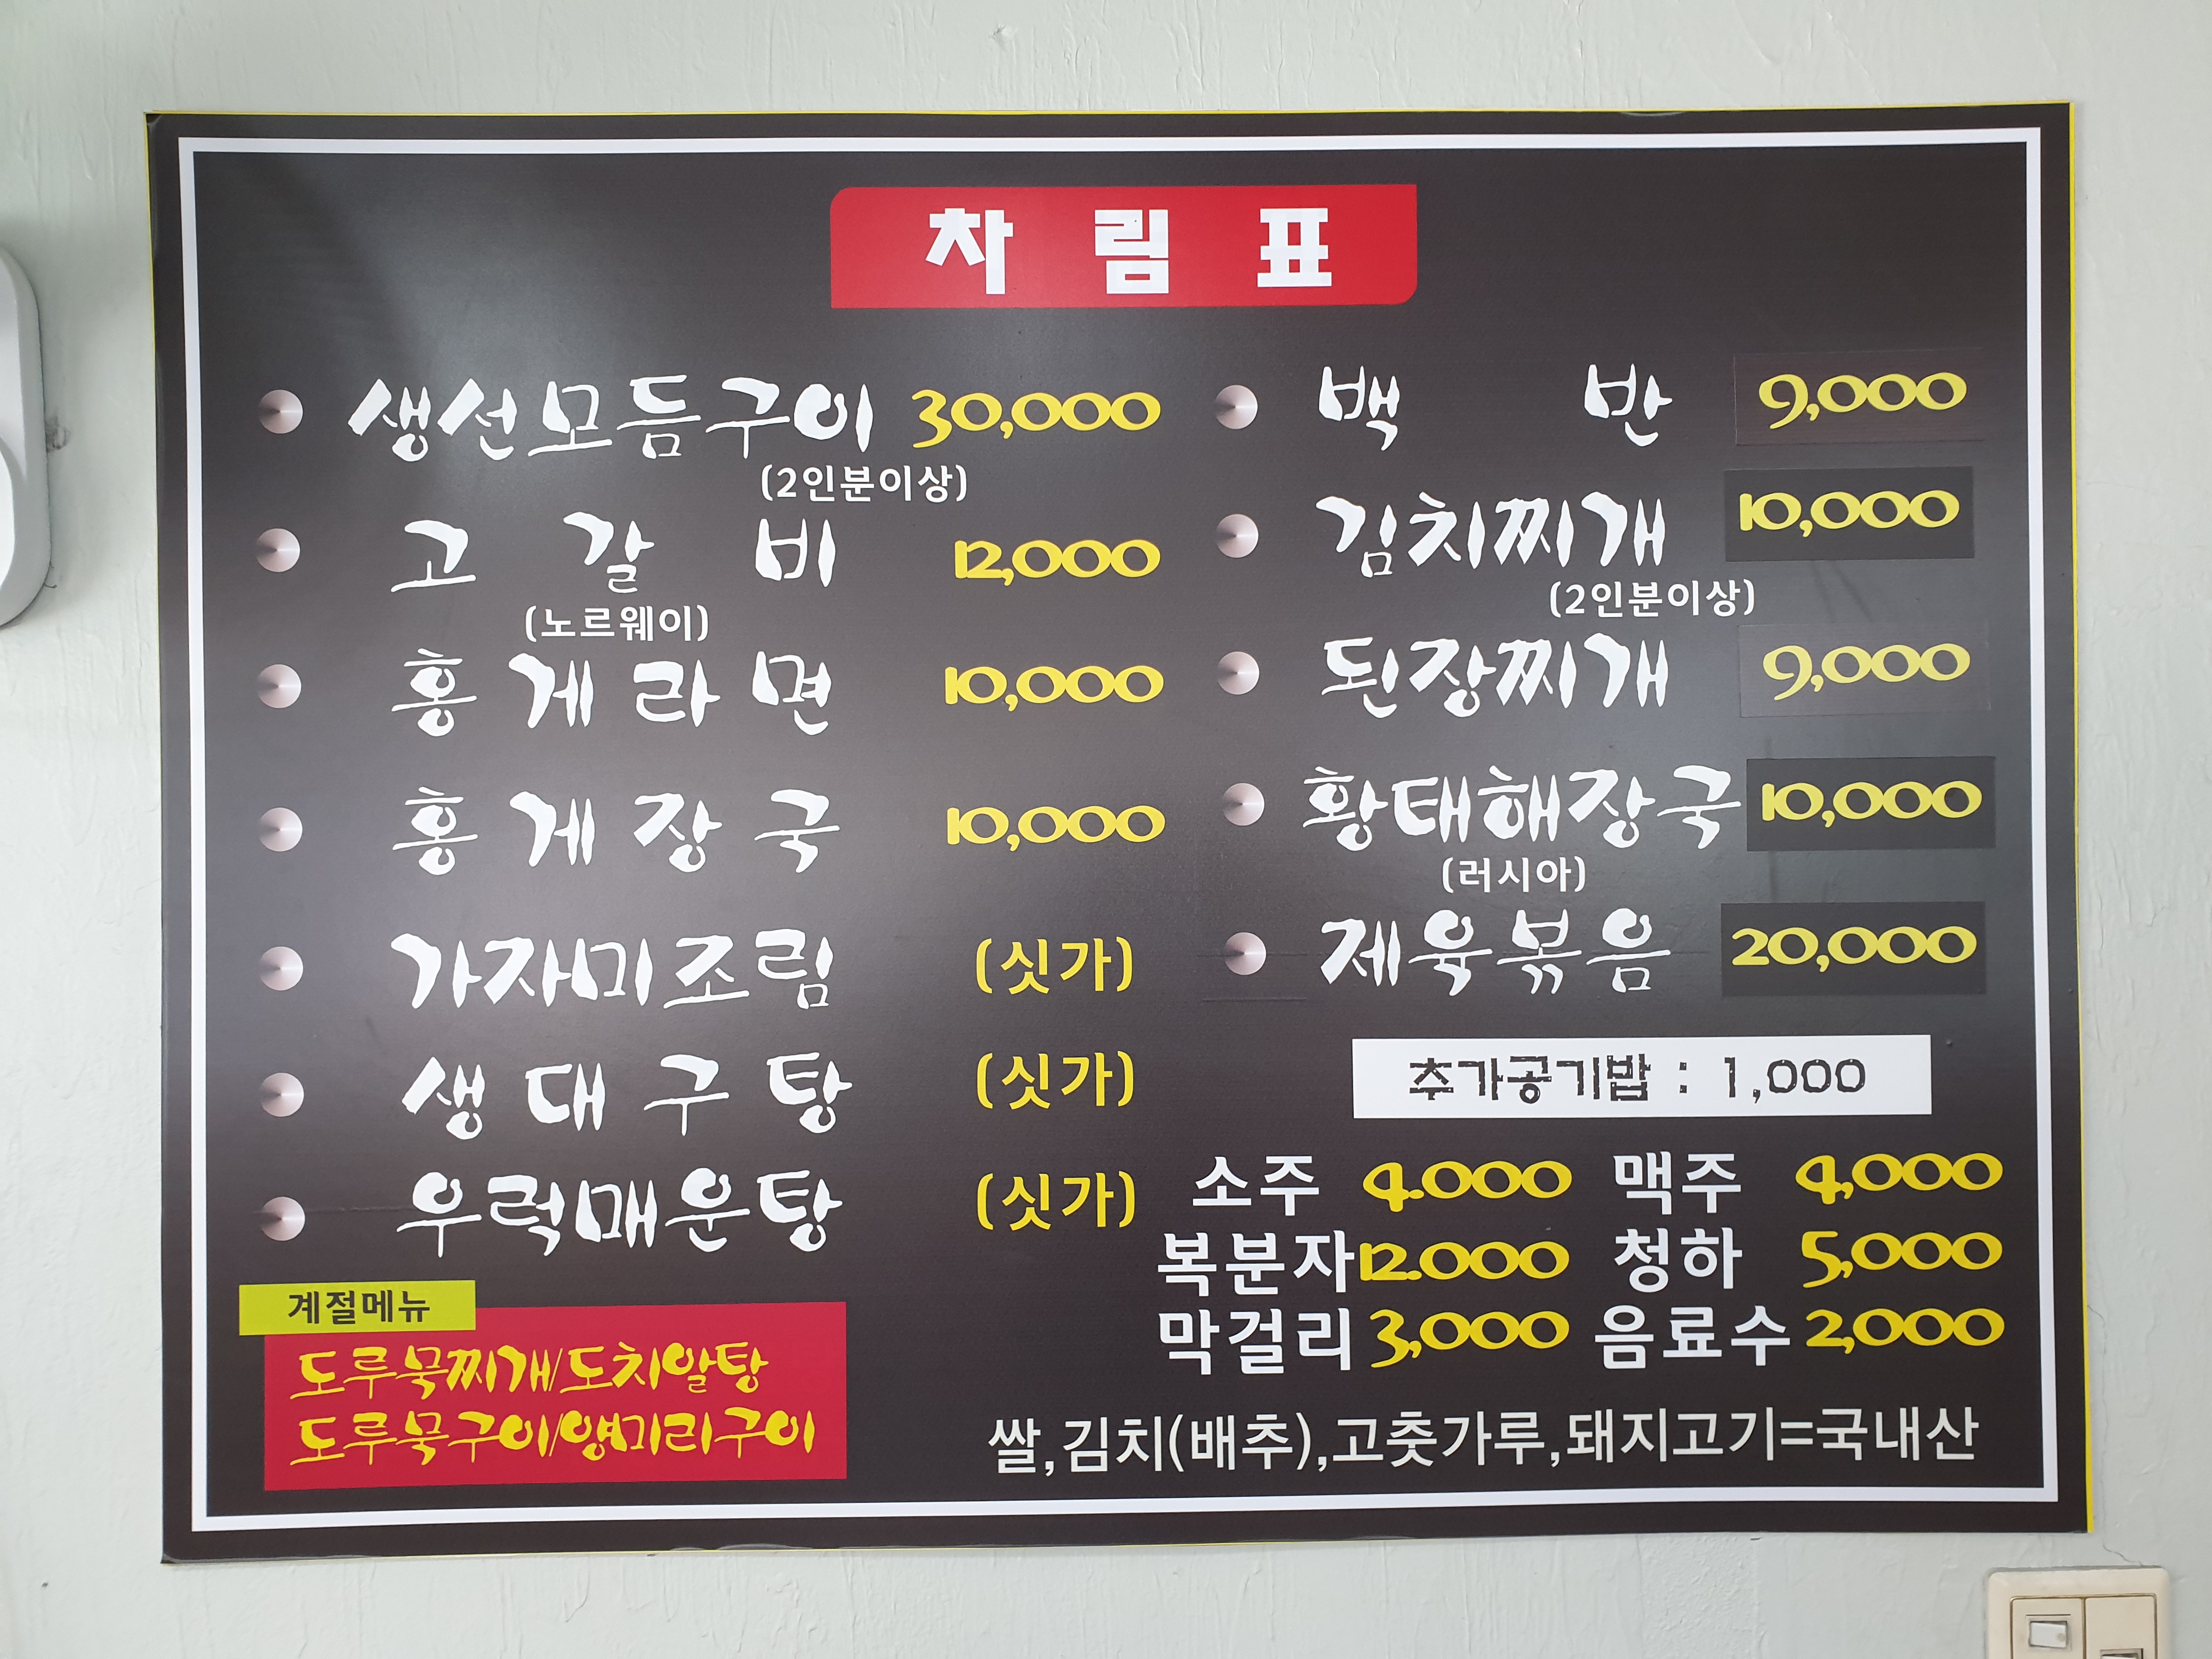 차림표
생선모듬구이 30,000
(2인분이상)
고갈비 12,000
(노르웨이)
홍게라면 10,000
홍게장국 10,000
가자미조림 (싯가)
생대구탕 (싯가)
우럭매운탕 (싯가)
계절메뉴
도루묵찌개/도치알탕
도루묵구이/양미리구이
백반 9,000
김치찌개 10,000
(2인분이상)
된장찌개 9,000
황태해장국 10,000
(러시아)
제육볶음 20,000
추가공기밥 : 1,000
소주 4.000 맥주 4,000
복분자 12.000 청하 5,000
막걸리 3,000 음료수 2,000
쌀,김치(배추),고춧가루,돼지고기=국내산